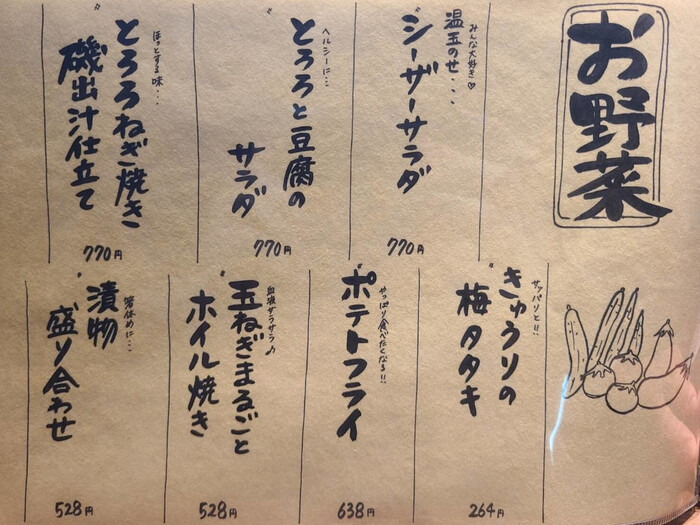 お野菜
みんな大好き♡
温玉のせ・・・
シーザーサラダ
770円
ヘルシーに・・
とろろと豆腐の
サラダ
770円
ほっとする味・・・
とろろねぎ焼き
磯出汁仕立て
770円
サッパリと!!
きゅうりの
梅タタキ
264円
やっぱり食べたくなる!!
ポテトフライ
638円
血液サラサラ♪
玉ねぎまるごと
ホイル焼き
528円
箸休めに・・
漬物
盛り合わせ
528円